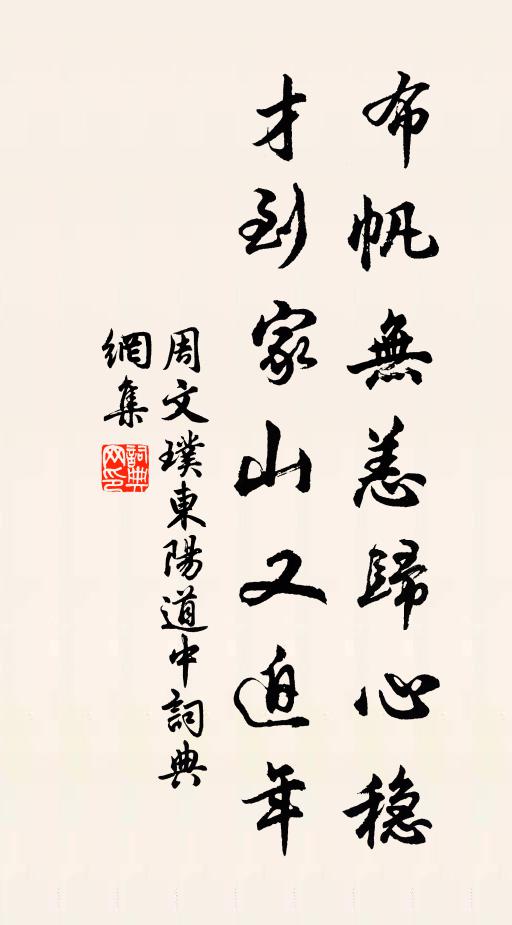 布帆無恙歸心穩
才到家山又迫年
周文璞東陽道中詞典
網集
詞典
网印